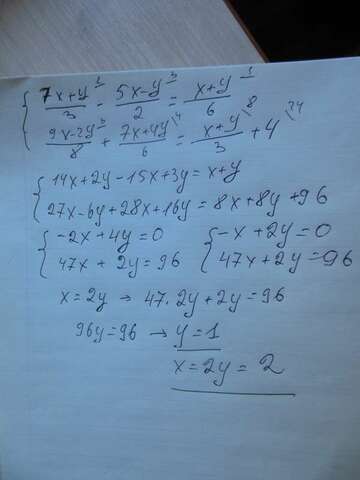 { (7x+y)/3 \2 - (5x-y)/2 \3 = (x+y)/6 \1
{ (9x-2y)/8 \3 + (7x+4y)/6 \4 = (x+y)/3 \8 + 4 \24
{ 14x+2y-15x+3y=x+y
{ 27x-6y+28x+16y=8x+8y+96
{ -2x+4y=0 { -x+2y=0
{ 47x+2y=96 { 47x+2y=96
x=2y → 47.2y+2y=96
96y=96 → y=1
x=2y=2